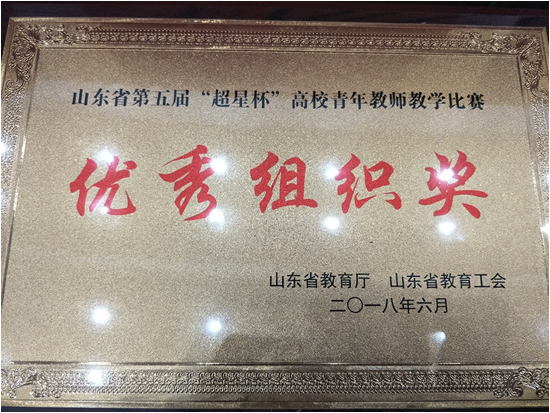 山东省第五届“超星杯”高校青年教师教学比赛
优秀组织奖
山东省教育厅 山东省教育工会
二〇一八年六月